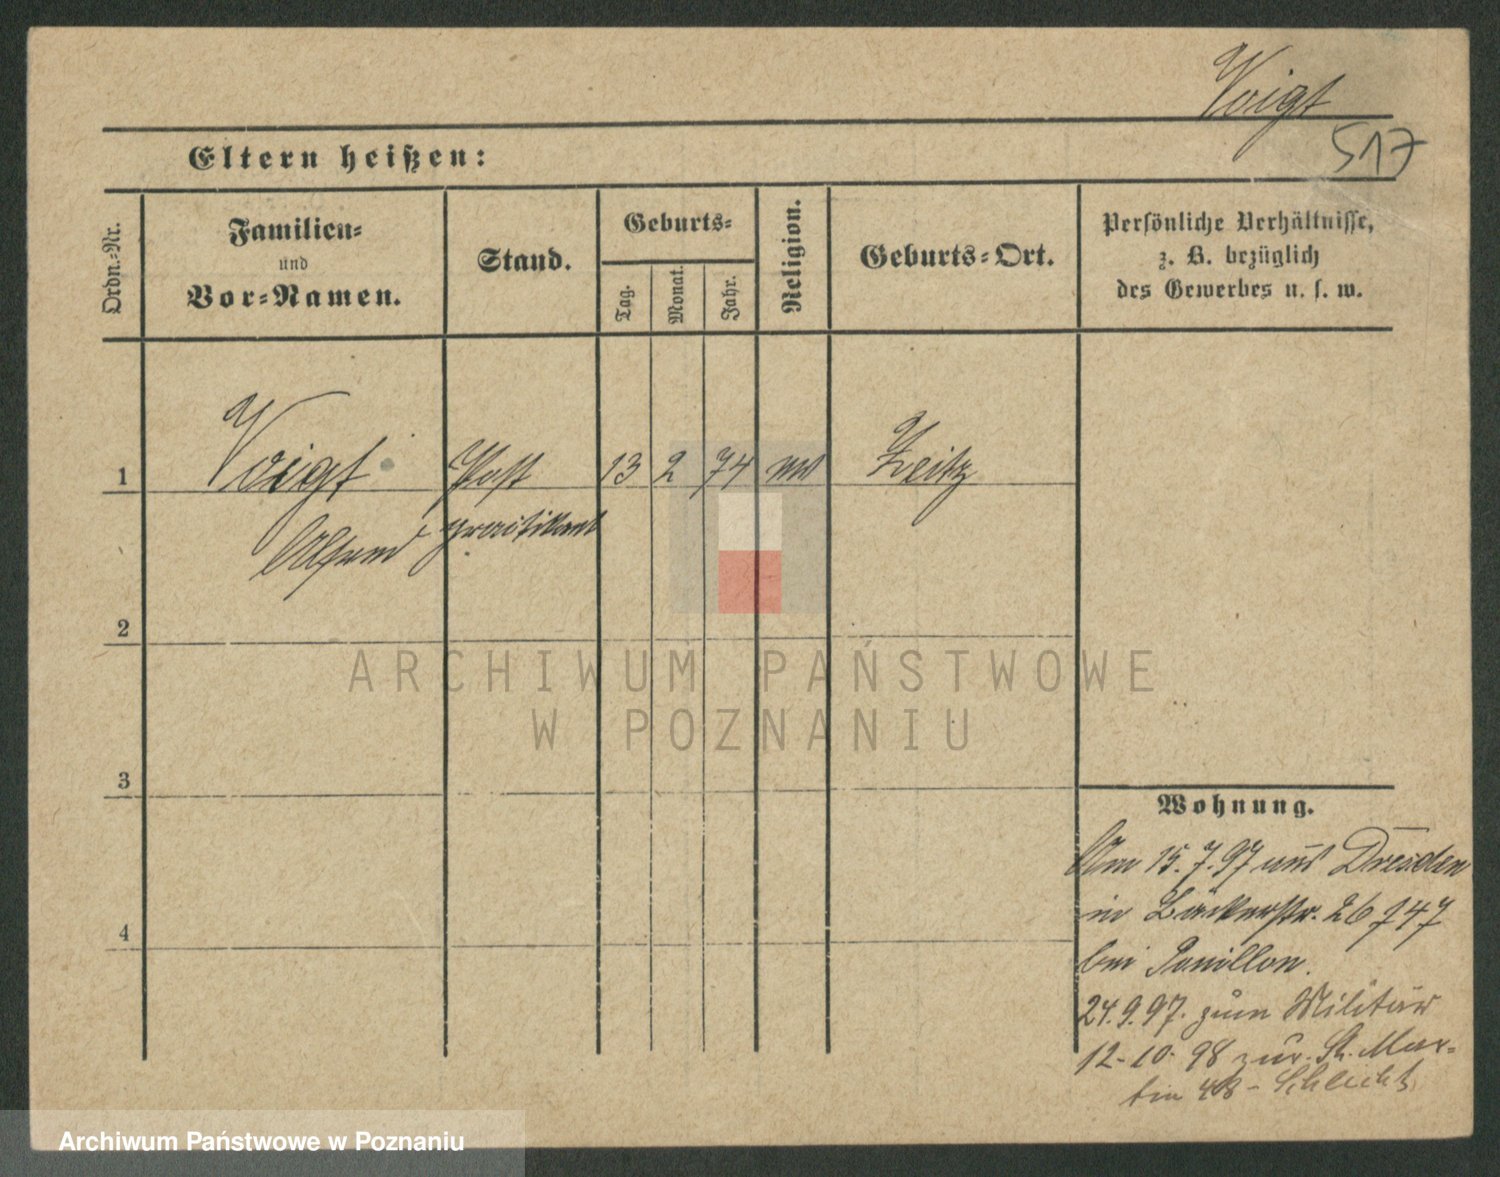 Voigt
517
Eltern heißen:
Ordn.-Nr.
Familien-
und
Vor-Namen.
Stand.
Geburts-
Tag.
Monat.
Jahr.
Religion.
Geburts-Ort.
Persönliche Verhältnisse,
z. B. bezüglich
des Gewerbes u. s. w.
1 Voigt Post 13 2 74 Zeitz
Alfred praktikant
2
3
4
Wohnung.
Am 15.7.97 aus Dresden
in Bäckerstr. 26
bei
24.9.97. zum Militär
12-10-98 zur. St. Mar-
tin 48- Schlicht
ARCHIWUM PAŃSTWOWE
W POZNANIU
Archiwum Państwowe w Poznaniu